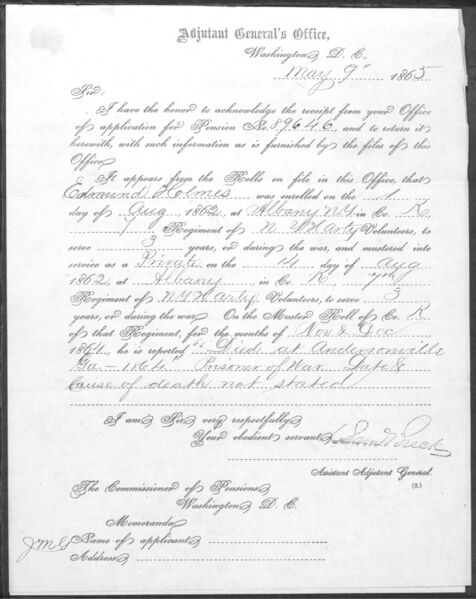 Adjutant General's Office,
Washington, D. C.
May 9" 1865
Sir:
I have the honor to acknowledge the receipt from your Office
of application for Pension No. 89646, and to return it
herewith, with such information as is furnished by the files of this
Office.
It appears from the Rolls on file in this Office, that
Edmund Holmes was enrolled on the 1
day of Aug 1862, at Albany NY in Co. K,
7 Regiment of N Y H Arty Volunteers, to
serve 3 years, or during the war, and mustered into
service as a Private on the 14 day of Aug
1862, at Albany, in Co. K 7th
Regiment of NY H Arty Volunteers, to serve 3
years, or during the war. On the Muster Roll of Co. K
of that Regiment, for the months of Nov & Dec
1864, he is reported "Died at Andersonville
Ga - 1864" Prisoner of War Date &
Cause of death not stated
I am Sir very respectfully
Your obedient servant
Saml Breck
Assistant Adjutant General.
The Commissioner of Pensions,
Washington, D. C.
Memoranda
Name of applicant
Address